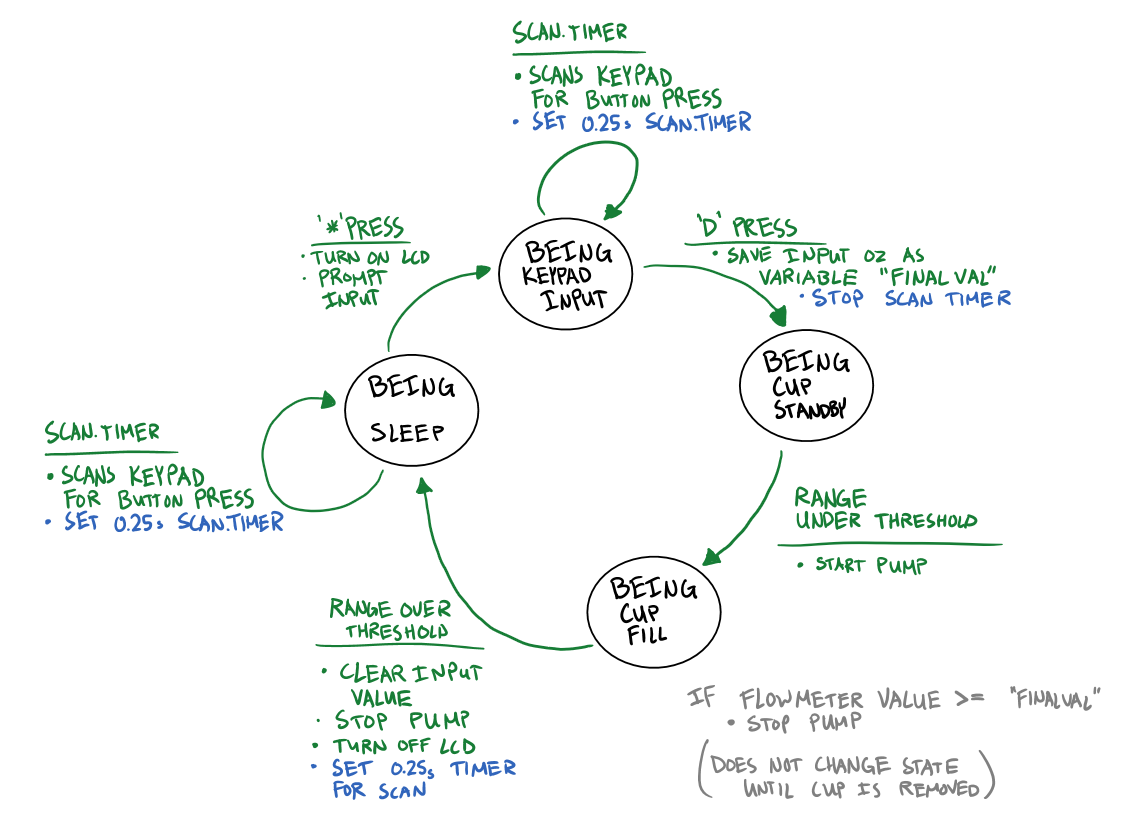 SCAN.TIMER
• SCANS KEYPAD
FOR BUTTON PRESS
• SET 0.25s SCAN.TIMER
'*' PRESS
• TURN ON LCD
• PROMPT
INPUT
BEING
KEYPAD
INPUT
'D' PRESS
• SAVE INPUT OZ AS
VARIABLE "FINAL VAL"
• STOP SCAN TIMER
BEING
CUP
STANDBY
BEING
SLEEP
SCAN.TIMER
• SCANS KEYPAD
FOR BUTTON PRESS
• SET 0.25s SCAN.TIMER
RANGE
UNDER THRESHOLD
• START PUMP
BEING
CUP
FILL
RANGE OVER
THRESHOLD
• CLEAR INPUT
VALUE
• STOP PUMP
• TURN OFF LCD
• SET 0.25s TIMER
FOR SCAN
IF FLOWMETER VALUE >= "FINALVAL"
• STOP PUMP
(DOES NOT CHANGE STATE
UNTIL CUP IS REMOVED)